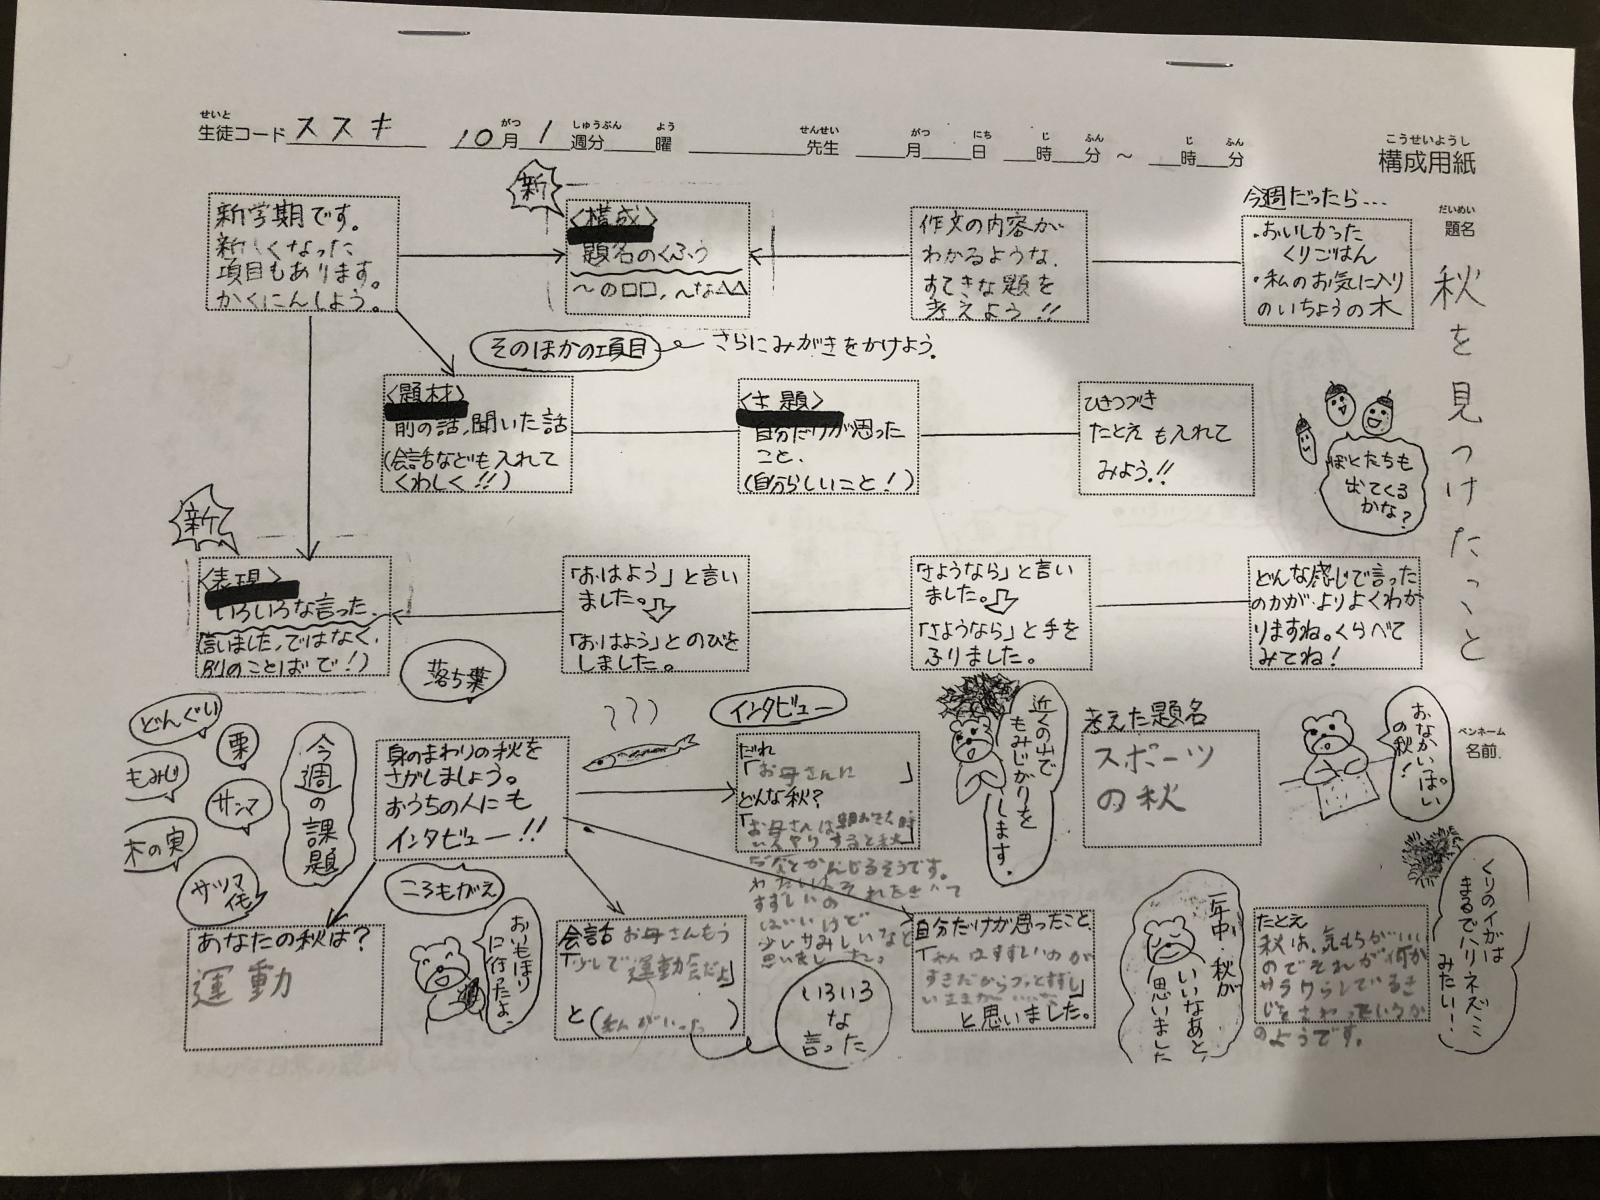 せいと
生徒コード ススキ
10月1週分 曜
がつ しゅうぶん よう
先生
せんせい
月 日 時 分 ～ 時 分
がつ にち じ ふん じ ふん
こうせいようし
構成用紙
だいめい
題名
秋を見つけたこと
ペンネーム
名前.
新学期です。
新しくなった
項目もあります。
かくにんしよう。
新
〈構成〉
題名のくふう
～の□□,～な△△
作文の内容が
わかるような、
すてきな題を
考えよう!!
今週だったら...
・おいしかった
くりごはん
・私のお気に入り
のいちょうの木
そのほかの項目
さらにみがきをかけよう.
〈題材〉
前の話,聞いた話
(会話なども入れて
くわしく!!)
〈主題〉
自分だけが思った
こと、
(自分らしいこと!)
ひきつづき
たとえ も入れて
みよう!!
ぼくたちも
出てくる
かな?
新
〈表現〉
いろいろな言った、
(言いました,ではなく、
別のことばで!)
「おはよう」と言い
ました。
「おはよう」とのびを
しました。
「さようなら」と言い
ました。
「さようなら」と手を
ふりました。
どんな感じで言った
のかが、よりよくわか
りますね。くらべて
みてね!
落ち葉
どんぐり
栗
もみじ
サンマ
木の実
サツマ
イモ
今週の課題
身のまわりの秋を
さがしましょう。
おうちの人にも
インタビュー!!
インタビュー
だれ
「お母さんに」
どんな秋?
「お母さんは朝おきた時
すると秋
だなとかんじるそうです。
わたしはそれをきいて
すずしいの
はいいけど
少しサみしいなと
思いました。
近くの山で
もみじがりを
します.
考えた題名
スポーツ
の秋
おなかいっぱい
の秋!
くりのイガは
まるでハリネズミ
みたい…
ころもがえ
あなたの秋は?
運動
おいもほり
に行ったよ。
会話 お母さんもう
「少しで運動会だよ」
と(私がいった)
いろいろ
な
言った
自分だけが思ったこと、
「私はすずしいのが
すきだからずっとすずし
いままが
と思いました。
一年中、秋が
いいなあと、
思いました
たとえ
秋は、気もちがいい
のでそれが何か
サラサラしているき
じをさわっているか
のようです。